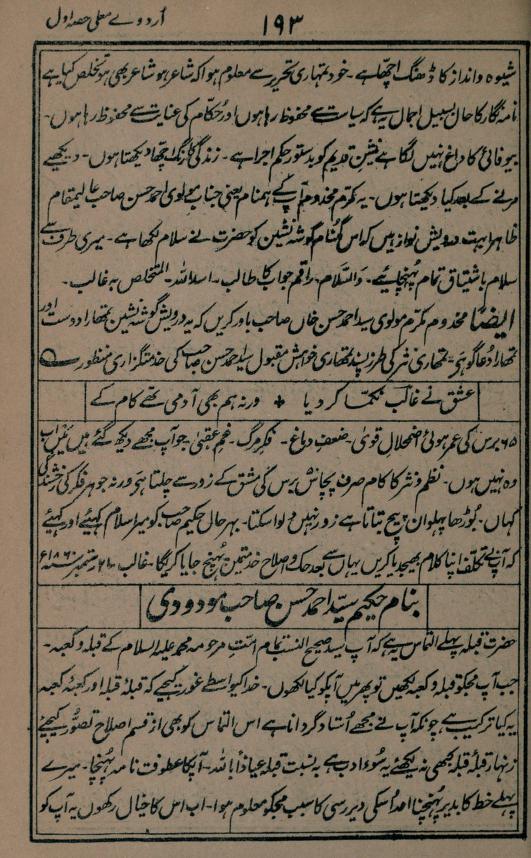 ۱۹۳ اُردوے معلی حصہ اول
شیوہ و انداز کا ڈھنگ اچھا ہے۔ خود تمہاری تحریر سے معلوم ہوا کہ شاعر ہو شاعر بھی ہو تخلص کیا ہے
نامہ نگار کا حال بسبیل اجمال یہ ہے کہ سیاست سے محفوظ رہا ہوں اور حُکام کی عنایت سے محفوظ رہا ہوں۔
بیوفائی کا داغ نہیں لگا ہے پنشن قدیم کو بدستور حکم اجرا ہے۔ زندگی کا رنگ اچھا دیکھتا ہوں۔ دیکھیے
مرنے کے بعد کیا دیکھتا ہوں۔ یہ مکرم مخدوم آپ کے ہمنام یعنی جناب مولوی احمد حسن صاحب عالیمقام
ظاہرا بہت درویش نواز ہیں کہ اس گمنام گوشہ نشین کو حضرت نے سلام لکھا ہے۔ میری طرف سے
سلام باشتیاق تمام پہنچائیے۔ والسّلام۔ راقم جواب کا طالب۔ اسد اللہ۔ المتخلص بہ غالب۔
ایضًا مخدوم مکرم مولوی سید احمد حسن خاں صاحب باور کریں کہ یہ درویش گوشہ نشین تمھارا دوست اور
تمھارا دعا گو ہے۔ تمھاری نثر کی طرز پسند تمھاری خواہش مقبول سید احمد حسن صاحب کی خدمتگزاری منظور
عشق نے غالبؔ نکمّا کر دیا + ورنہ ہم بھی آدمی تھے کام کے
۶۵ برس کی عمر ہوئی اضمحلال قویٰ۔ ضعف دماغ۔ فکر مرگ۔ غم عقبیٰ۔ جو آپ مجھے دیکھ گئے ہیں میں اب
وہ نہیں ہوں۔ نظم و نثر کا کام صرف پچاس برس کی مشق کے زور سے چلتا ہے ورنہ جوہر فکر کی رخشندگی
کہاں۔ بُوڑھا پہلوان پیچ بتاتا ہے زور نہیں دلوا سکتا۔ بہر حال حکیم صاحب کو میرا سلام کہیے اور کہیے
کہ آپ بے تکلف اپنا کلام بھیجدیا کریں یہاں سے بعد حک و اصلاح خدمت میں پہنچ جایا کریگا۔ غالب۔ ستمبر سنہ ۱۸۶۰ع
بنام حکیم سیّد احمد حسن صاحب مودودی
حضرت قبلہ پہلے التماس یہ ہے کہ آپ سید صحیح النسب تمام اُمّتِ مرحومہ محمد علیہ السلام کے قبلہ و کعبہ۔
جب آپ مجکو قبلہ و کعبہ لکھیں تو پھر میں آپکو کیا لکھوں۔ خدا کیواسطے غور کیجیے کہ قبلۂ قبلہ اور کعبۂ کعبہ
یہ کیا ترکیب ہے چونکہ آپ نے مجھے اُستاد گردانا ہے اس التماس کو بھی از قسم اصلاح تصور کیجئے
زنہار قبلۂ قبلہ کبھی نہ لکھئے یہ سُوء ادب ہے بہ نسبت قبلہ عیاذاً باللہ۔ آپکا عطوفت نامہ پہنچا۔ میرے
پہلے خط کا بدیر پُہنچنا اور اُسکی دیر رسی کا سبب مجکو معلوم ہوا۔ اب اس کا خیال رکھوں یہ آپ کو